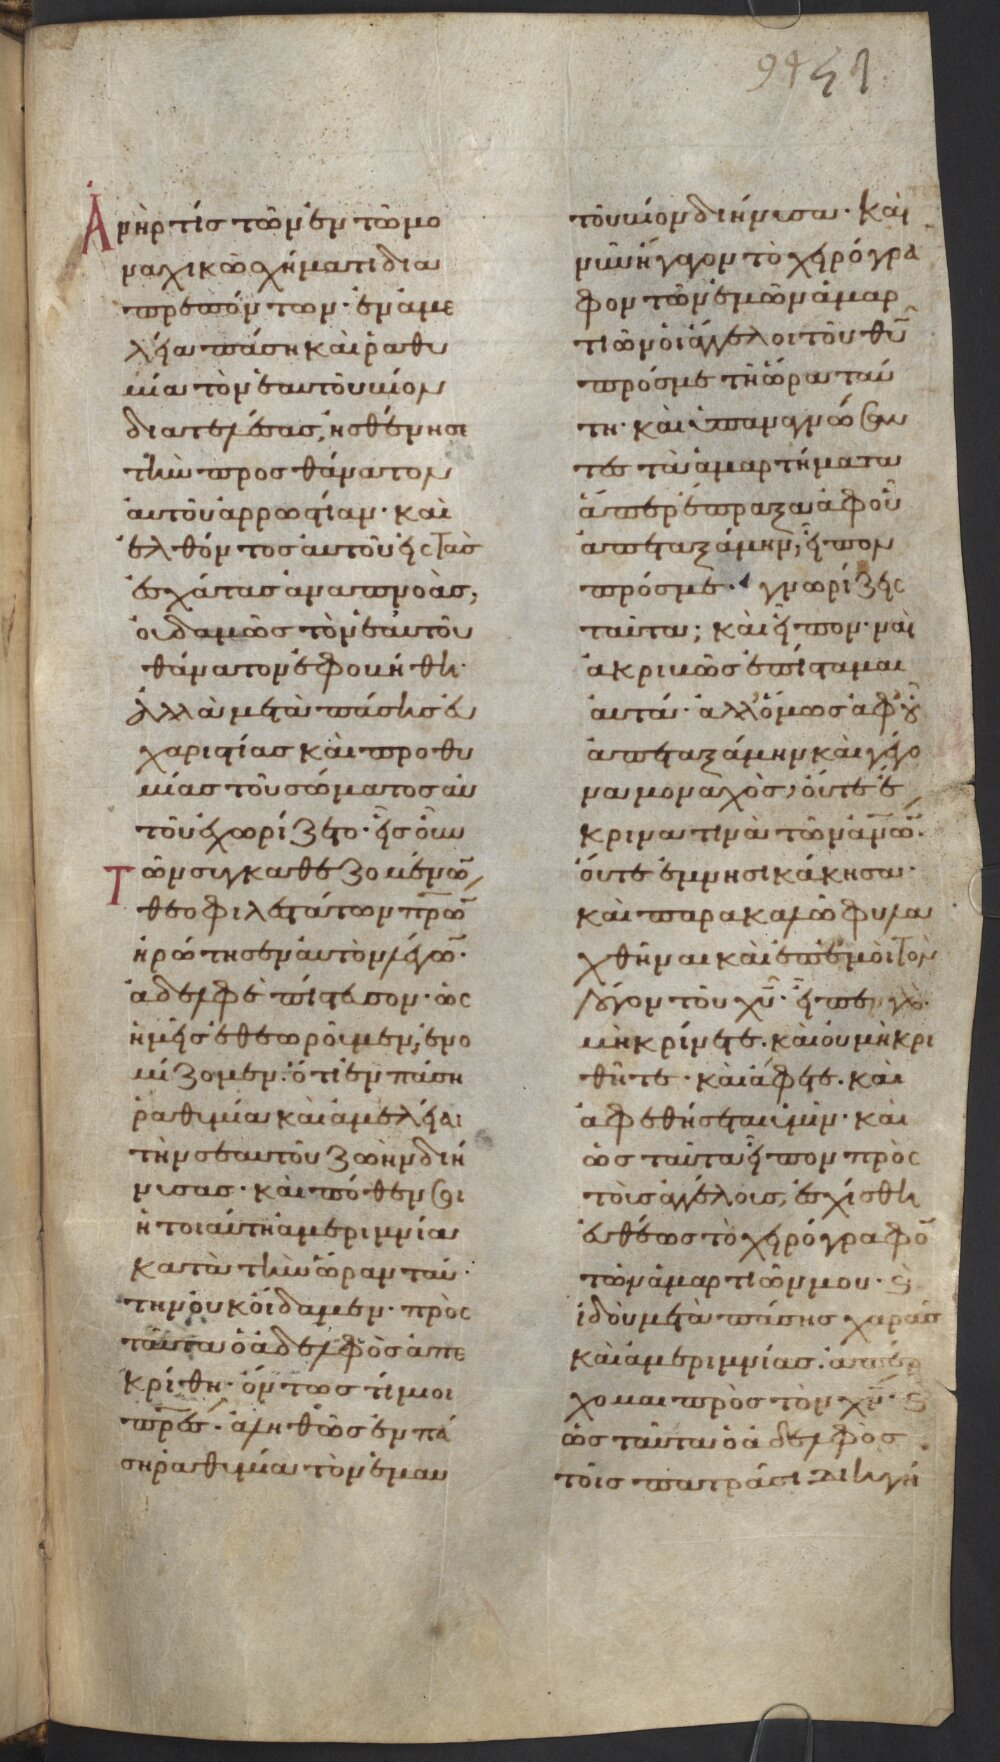 94 51
Ἀνὴρ τίς τῶν ἐν τῶ μο
ναχικῶ σχήματι δια
πρεπόντων· ἐν ἀμε
λεία πάση καὶ ῥαθυ
μία τὸν ἑαυτοῦ βίον
διατελέσας, ἠσθένησε
τὴν προς θάνατον
αὐτοῦ ἀρρωστίαν· καὶ
ἐλθόντος αὐτοῦ εἰς τὰς
ἐσχάτας ἀναπνοὰς,
οὐδαμῶς τὸν ἑαυτοῦ
θάνατον ἐφοβήθη·
ἀλλὰ μετὰ πάσης εὐ
χαριστίας καὶ προθυ
μίας τοῦ σώματος αὐ
τοῦ ἐχωρίζετο· εἷς οὖν
τῶν συγκαθεζομένῶ
θεοφιλεστάτων πρῶν
ἠρώτησεν αὐτὸν λέγῶ·
ἀδελφὲ πίστευσον· ὡς
ἡμεῖς ἐθεωροῦμεν, ἐνο
μίζομεν· ὅτι ἐν πάση
ῥαθυμία καὶ ἀμελεία
τὴν σεαυτοῦ ζωὴν διή
νυσας· καὶ πόθεν σοι
ἡ τοιαύτη ἀμεριμνία
κατὰ τὴν ὥραν ταύ
την οὐκ οἴδαμεν· πρὸς
ταῦτα ὁ ἀδελφὸς ἀπε
κρίθη· ὄντως τίμιοι
πρες· ἀληθῶς ἐν πά
ση ῥαθυμία τὸν ἐμαυ
τοῦ βίον διήνυσα· καὶ
νῦν ἤγαγον τὸ χειρόγρα
φον τῶν ἐμῶν ἁμαρ
τιῶν οἱ ἄγγελοι τοῦ θυ
πρός με τῆ ὥρα ταύ
τη· καὶ ἐπαναγνώσαν
τες τὰ ἁμαρτήματα
ἅπερ ἔπραξα ἀφ οὗ
ἀπεταξάμην, εἶπον
πρός με· γνωρίζεις
ταῦτα; καὶ εἶπον· ναὶ
ἀκριβῶς ἐπίσταμαι
αὐτά· ἀλλ ὅμως ἀφ οὗ
ἀπεταξάμην καὶ γέγο
να μοναχὸς, οὔτε ἔ
κρινα τινὰ τῶν ἀνῶν·
οὔτε ἐμνησικάκησα·
καὶ παρακαλῶ φυλα
χθῆναι καὶ ἐπ ἐμοὶ τὸν
λόγον τοῦ χυ· εἶπε γὰρ·
μὴ κρίνετε· καὶ οὐ μὴ κρι
θῆτε· καὶ ἄφετε· καὶ
ἀφεθήσεται ὑμῖν· καὶ
ὡς ταῦτα εἶπον πρὸς
τοὺς ἀγγέλους, ἐσχίσθη
εὐθέως τὸ χειρόγραφο
τῶν ἁμαρτιῶν μου· καὶ
ἰδοὺ μετὰ πάσης χαρᾶς
καὶ ἀμεριμνίας· ἀπέρ
χομαι πρὸς τὸν χν· καὶ
ὡς ταῦτα ὁ ἀδελφὸς
τοῖς πατράσι διηγή